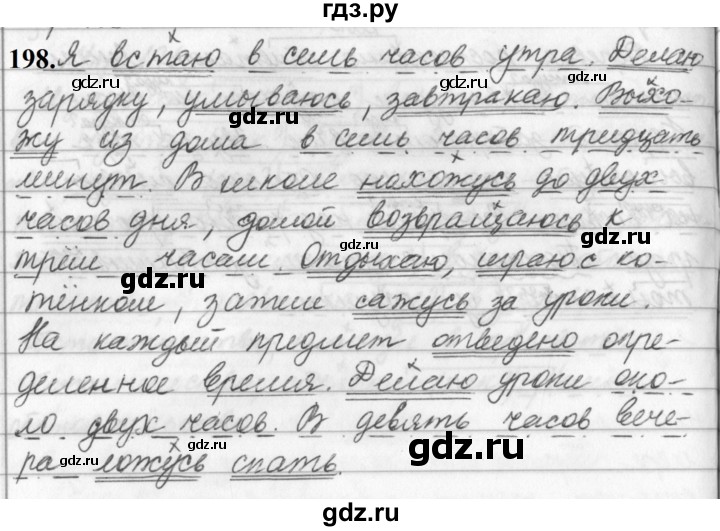 гдз.ру
198. Я встаю в семь часов утра. Делаю
зарядку, умываюсь, завтракаю. Выхо-
жу из дома в семь часов тридцать
минут. В школе нахожусь до двух
часов дня, домой возвращаюсь к
трём часам. Отдыхаю, играю с ко-
тёнком, затем сажусь за уроки.
На каждый предмет отведено опре-
деленное время. Делаю уроки око-
ло двух часов. В девять часов вече-
ра ложусь спать.
gdz.ru
gdz.ru
gdz.ru
gdz.ru
gdz.ru
gdz.ru
gdz.ru
gdz.ru
gdz.ru
gdz.ru
gdz.ru
gdz.ru
gdz.ru
gdz.ru